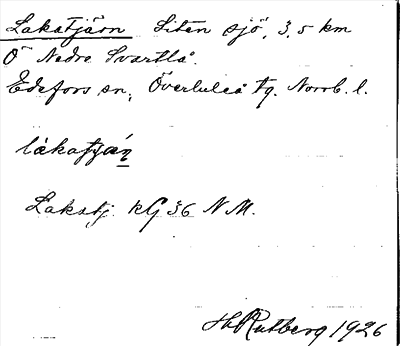 Lakatjärn Liten sjö, 3,5 km
Ö Nedre Svartlå.
Edefors sn, Överluleå tg. Norrb. l.
lakatjan
Lakatj. KG 36 N.M.
H Rutberg 1926